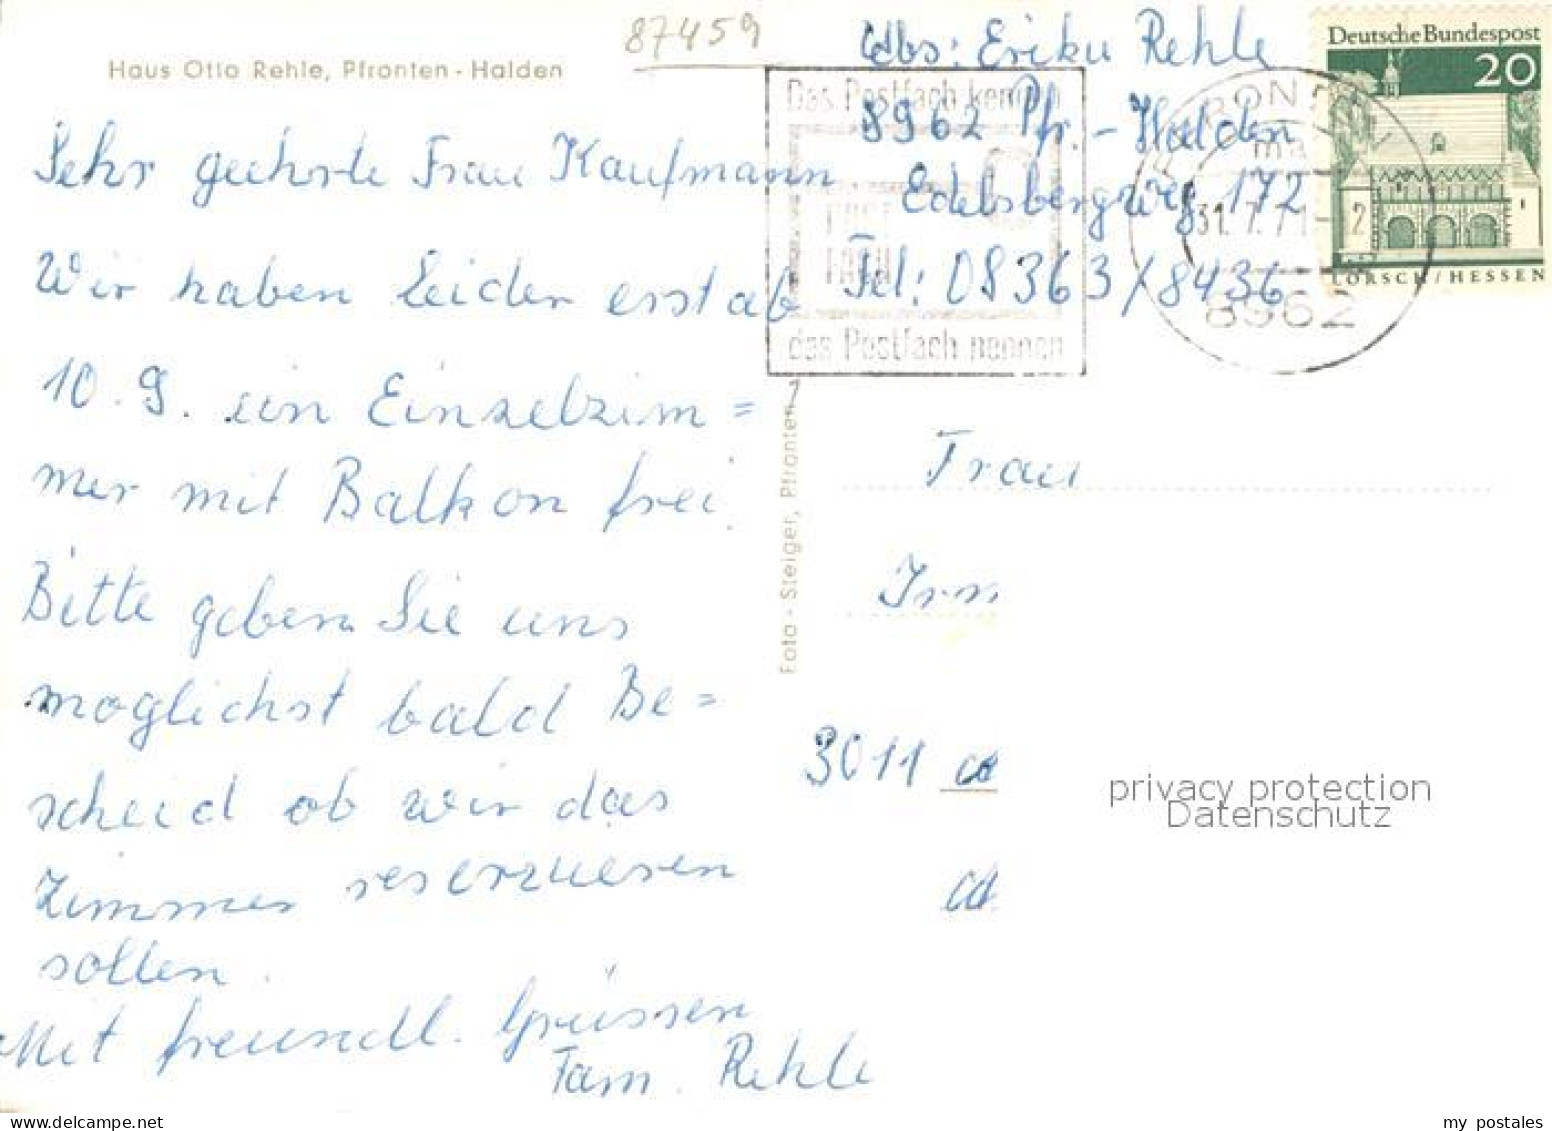 87459
Haus Otto Rehle, Pfronten - Halden
Abs: Erika Rehle
8962 Pfr. - Halden
Edelsbergweg 172
Tel: 08363/8436
Deutsche Bundespost
20
LORSCH/HESSEN
Das Postfach kennen
POST
FACH
das Postfach nennen
PFRONTEN
31.7.71-12
8962
Sehr geehrte Frau Kaufmann
Wir haben leider erst ab
10.9. ein Einzelzim=
mer mit Balkon frei.
Bitte geben Sie uns
möglichst bald Be=
scheid ob wir das
Zimmer reservieren
sollen.
Mit freundl. Grüssen
Fam. Rehle
Foto - Steiger, Pfronten
Frau
Irm
3011
privacy protection
Datenschutz
www.delcampe.net
my_postales